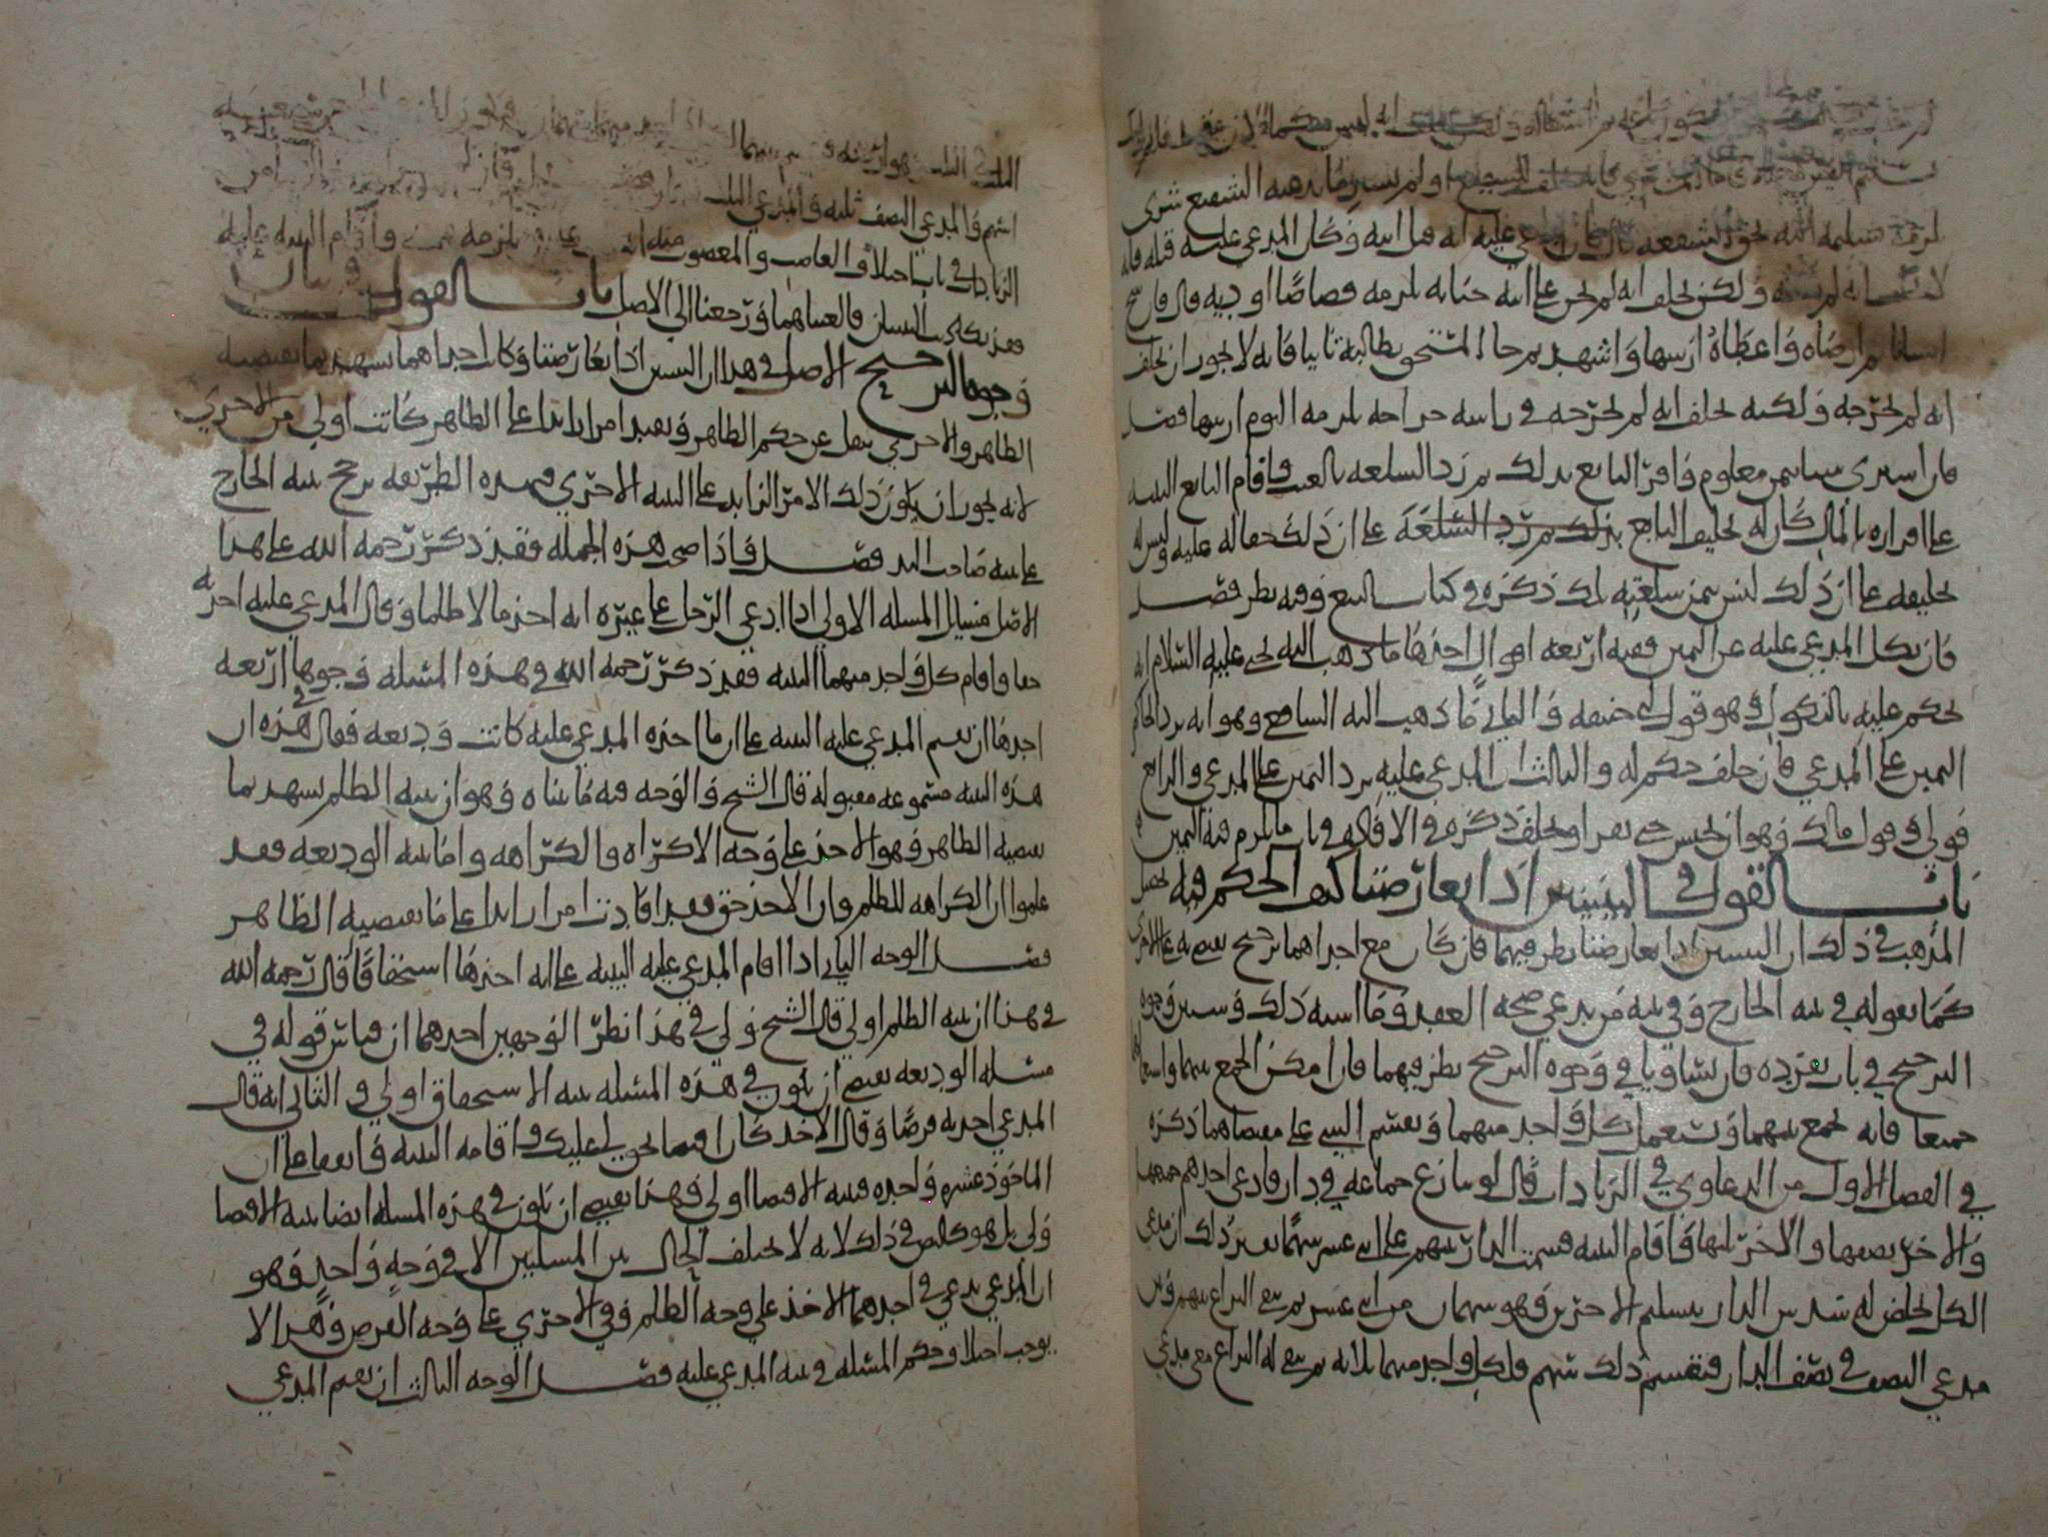 لكون انه ليس
تسليم الثمن او لم يسترِ ما يدعيه الشفيع شرى
لزمه تسليمه اليه لحق الشفعه فان المدعي عليه انه قتل ابيه وكان المدعي عليه قتله فانه
انه لم يقتله ولكن يحلف انه لم يجن على ابيه جنايه يلزمه قصاصًا او ديه فان جرح
انسانا ثم ارضاه واعطاه ارشها واشهد ثم جا المستحق يطالبه ثانيا فانه لا يجوز ان يحلف
انه لم يجرحه ولكنه يحلف انه لم يجرحه في راسه جراحه يلزمه اليوم ارشها فصل
فان اشترى شيا بثمن معلوم واقر البايع بذلك ثم رد السلعه بالعيب واقام البايع البينه
على اقراره بالمال كان له تحليف البايع على ان ذلك حقا له عليه وليس له
تحليفه على ان ذلك ليس بثمن سلعته لك ذكره في كتاب البيع وفيه نظر فصل
فان نكل المدعي عليه عن اليمين ففيه اربعه اقوال احدها ما ذهب اليه يحيى عليه السلام انه
يحكم عليه بالنكول وهو قول ابي حنيفه والثاني ما ذهب اليه الشافعي وهو انه يرد الحاكم
اليمين على المدعي فان حلف حكم له والثالث ان المدعي عليه يرد اليمين على المدعي والرابع
قول ملك وهو ان يحبس حتى يقر او يحلف ذكره في الافاده في باب ما يلزم فيه اليمين
باب القول في البينتين اذا تعارضتا كيف الحكم فيه تحصيل
المذهب في ذلك ان البينتين اذا تعارضتا نظر فيهما فان كان مع احداهما ترجيح قضي به على الاخرى
كما نقوله في بينه الخارج وفي بينه من يدعي صحه العقد وما اشبه ذلك وسنبين وجوه
الترجيح في باب نفرده فان تساويا في وجوه الترجيح نظر فيهما فان امكن الجمع بينهما واستعمالهما
جميعا فانه يجمع بينهما وتستعمل كل واحد منهما ويقسم الشي على مقتضاهما ذكره
في الفصل الاول من الدعاوي في الزيادات قال لو تنازع جماعه في دار فادعى احدهم جميعها
والاخر نصفها والاخر ثلثها واقام البينه قسمت الدار بينهم على اثني عشر سهمًا يعني ذلك ان مدعي
الكل يخلص له سدس الدار بتسليم الاخرين وهو سهمان من اثني عشر ثم يبقى النزاع بينهم وبين
مدعي النصف في نصف الدار فنقسم ذلك بينهم ولكل واحد منهما ثلاثه ثم يبقى له النزاع مع مدعي
الثلث في الثلث وهو اربعه
اسهم والمدعي النصف ثلثه والمدعي الثلث
الزيادات في باب اختلاف الغاصب والمغصوب منه
فقد تكاذبت البينتان فالغيناهما ورجعنا الى الاصل باب القول في بيان
وجوه الترجيح الاصل في هذا ان البينتين اذا تعارضتا وكانت احداهما تشهد بما يقتضيه
الظاهر والاخرى تنقل عن حكم الظاهر وتفيد امرا زايدا على الظاهر كانت اولى من الاخرى
لانه يجوز ان يكون ذلك الامر الزايد على البينه الاخرى وبهذه الطريقه ترجح بينه الخارج
على بينه صاحب اليد فصل فاذا صحت هذه الجمله فقد ذكر رحمه الله على هذا
الاصل مسايل المسله الاولى اذا ادعى الرجل على غيره انه اخذ مالا ظلما وقال المدعي عليه اخذته
حقا واقام كل واحد منهما البينه فقد ذكر رحمه الله في هذه المسله وجوها اربعه
احدها ان يقيم المدعي عليه البينه على ان ما اخذه المدعي عليه كانت وديعه فقال في هذه ان
هذه البينه مسموعه مقبوله قال الشيخ والوجه فيه ما بيناه وهو ان بينه الظلم تشهد بما
يقتضيه الظاهر وهو الاخذ على وجه الاكراه والكراهه واما بينه الوديعه فقد
علموا ان الكراهه للظلم وان الاخذ حق فقد افادت امرا زايدا على ما يقتضيه الظاهر
فصل الوجه الثاني اذا اقام المدعي عليه البينه على انه اخذها استحقاقا قال رحمه الله
في هذا ان بينه الظلم اولى قال الشيخ ولي في هذا نظر الوجهين احدهما ان قياس قوله في
مسله الوديعه يقتضي ان يكون في هذه المسله بينه الاستحقاق اولى والثاني انه قال
المدعي اخذته قرضًا وقال الاخذ كان اقتضا لحق لي عليك واقامه البينه واتفقا على ان
الماخوذ عشره واحده فبينه الاقتضا اولى فهذا يقتضي ان يكون في هذه المسله ايضا بينه الاقتضا
ولى بل هو كالنص في ذلك لانه لا يختلف الحال بين المسلتين الا في وجهٍ واحدٍ وهو
ان المدعي يدعي في احدهما الاخذ على وجه الظلم وفي الاخرى على وجه القرض وهذا لا
يوجب اختلاف حكم المسله في بينه المدعي عليه فصل الوجه الثالث ان يقيم المدعي